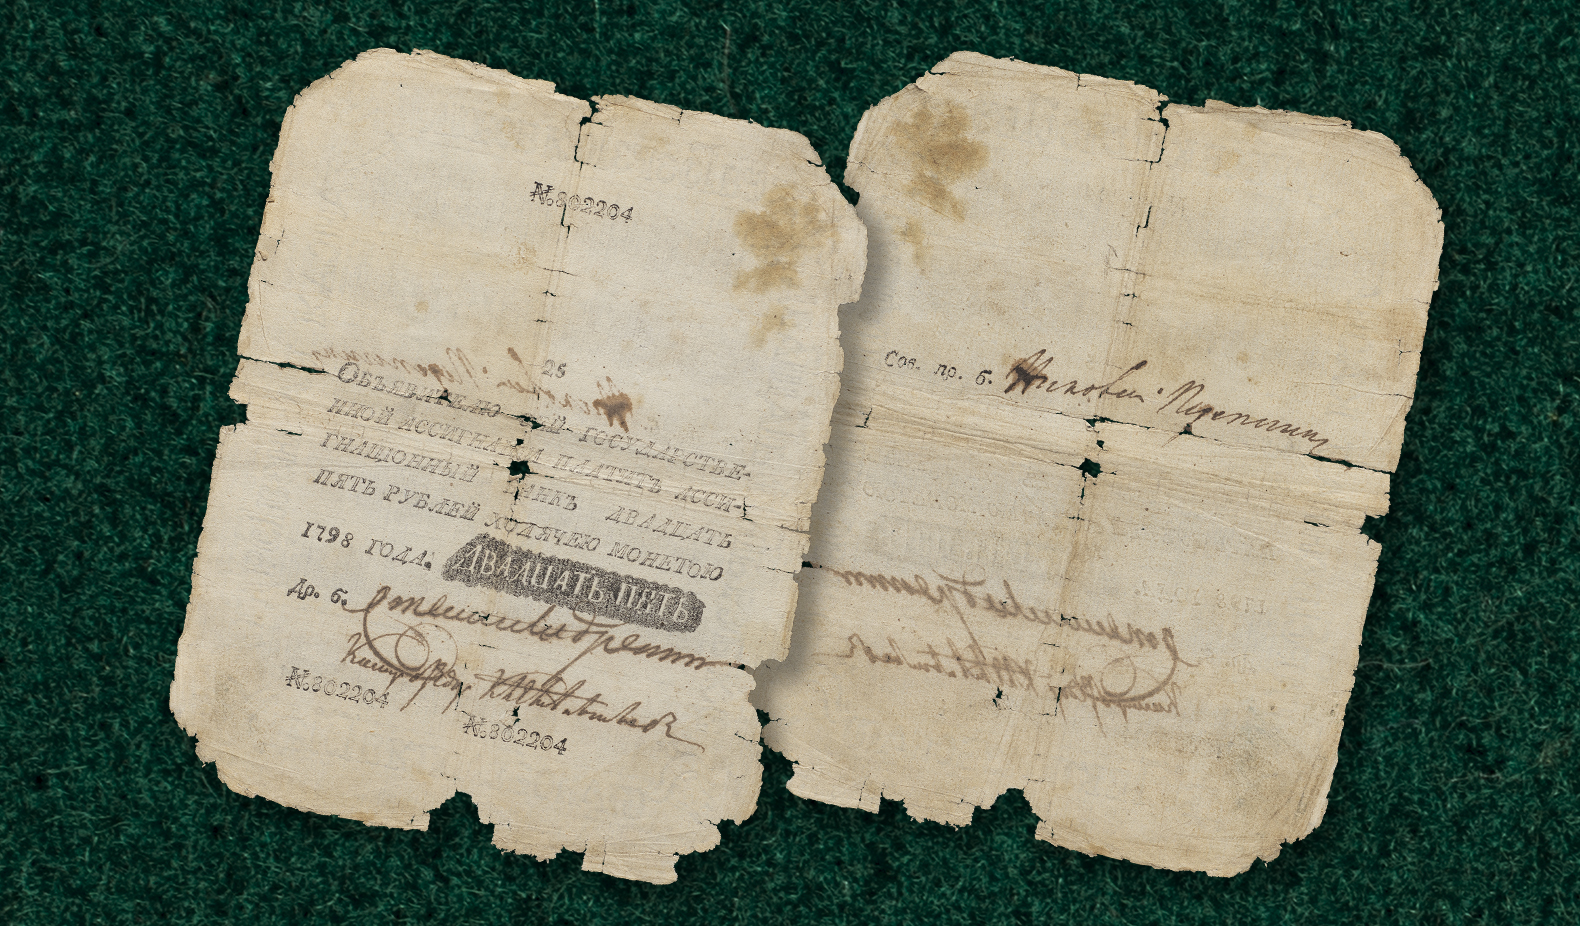 №802204
25
ОБЪЯВИТЕЛЮ СЕЙ ГОСУДАРСТВЕ-
ННОЙ АССИГНАЦIИ ПЛАТИТЪ АССИ-
ГНАЦIОННЫЙ БАНКЪ ДВАДЦАТЬ
ПЯТЬ РУБЛЕЙ ХОДЯЧЕЮ МОНЕТОЮ
1798 ГОДА.
ДВАДЦАТЬ ПЯТЬ
Др. б.
№802204
№802204
Сов. пр. б.